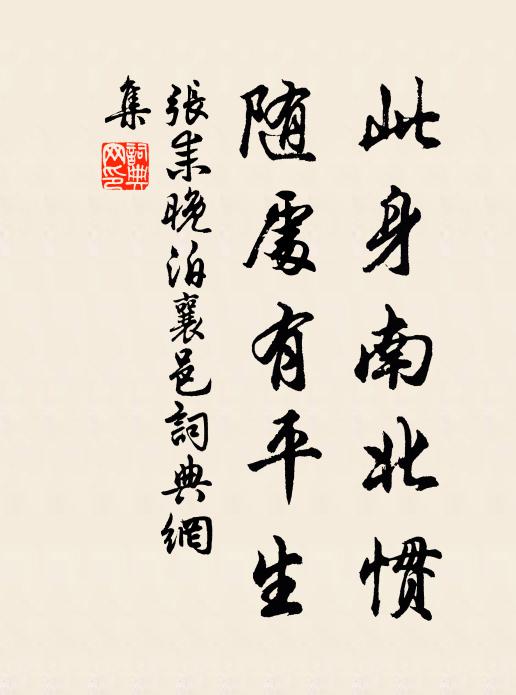 此身南北惯
随處有平生
張耒晚泊襄邑詞典網
集
詞典
网印